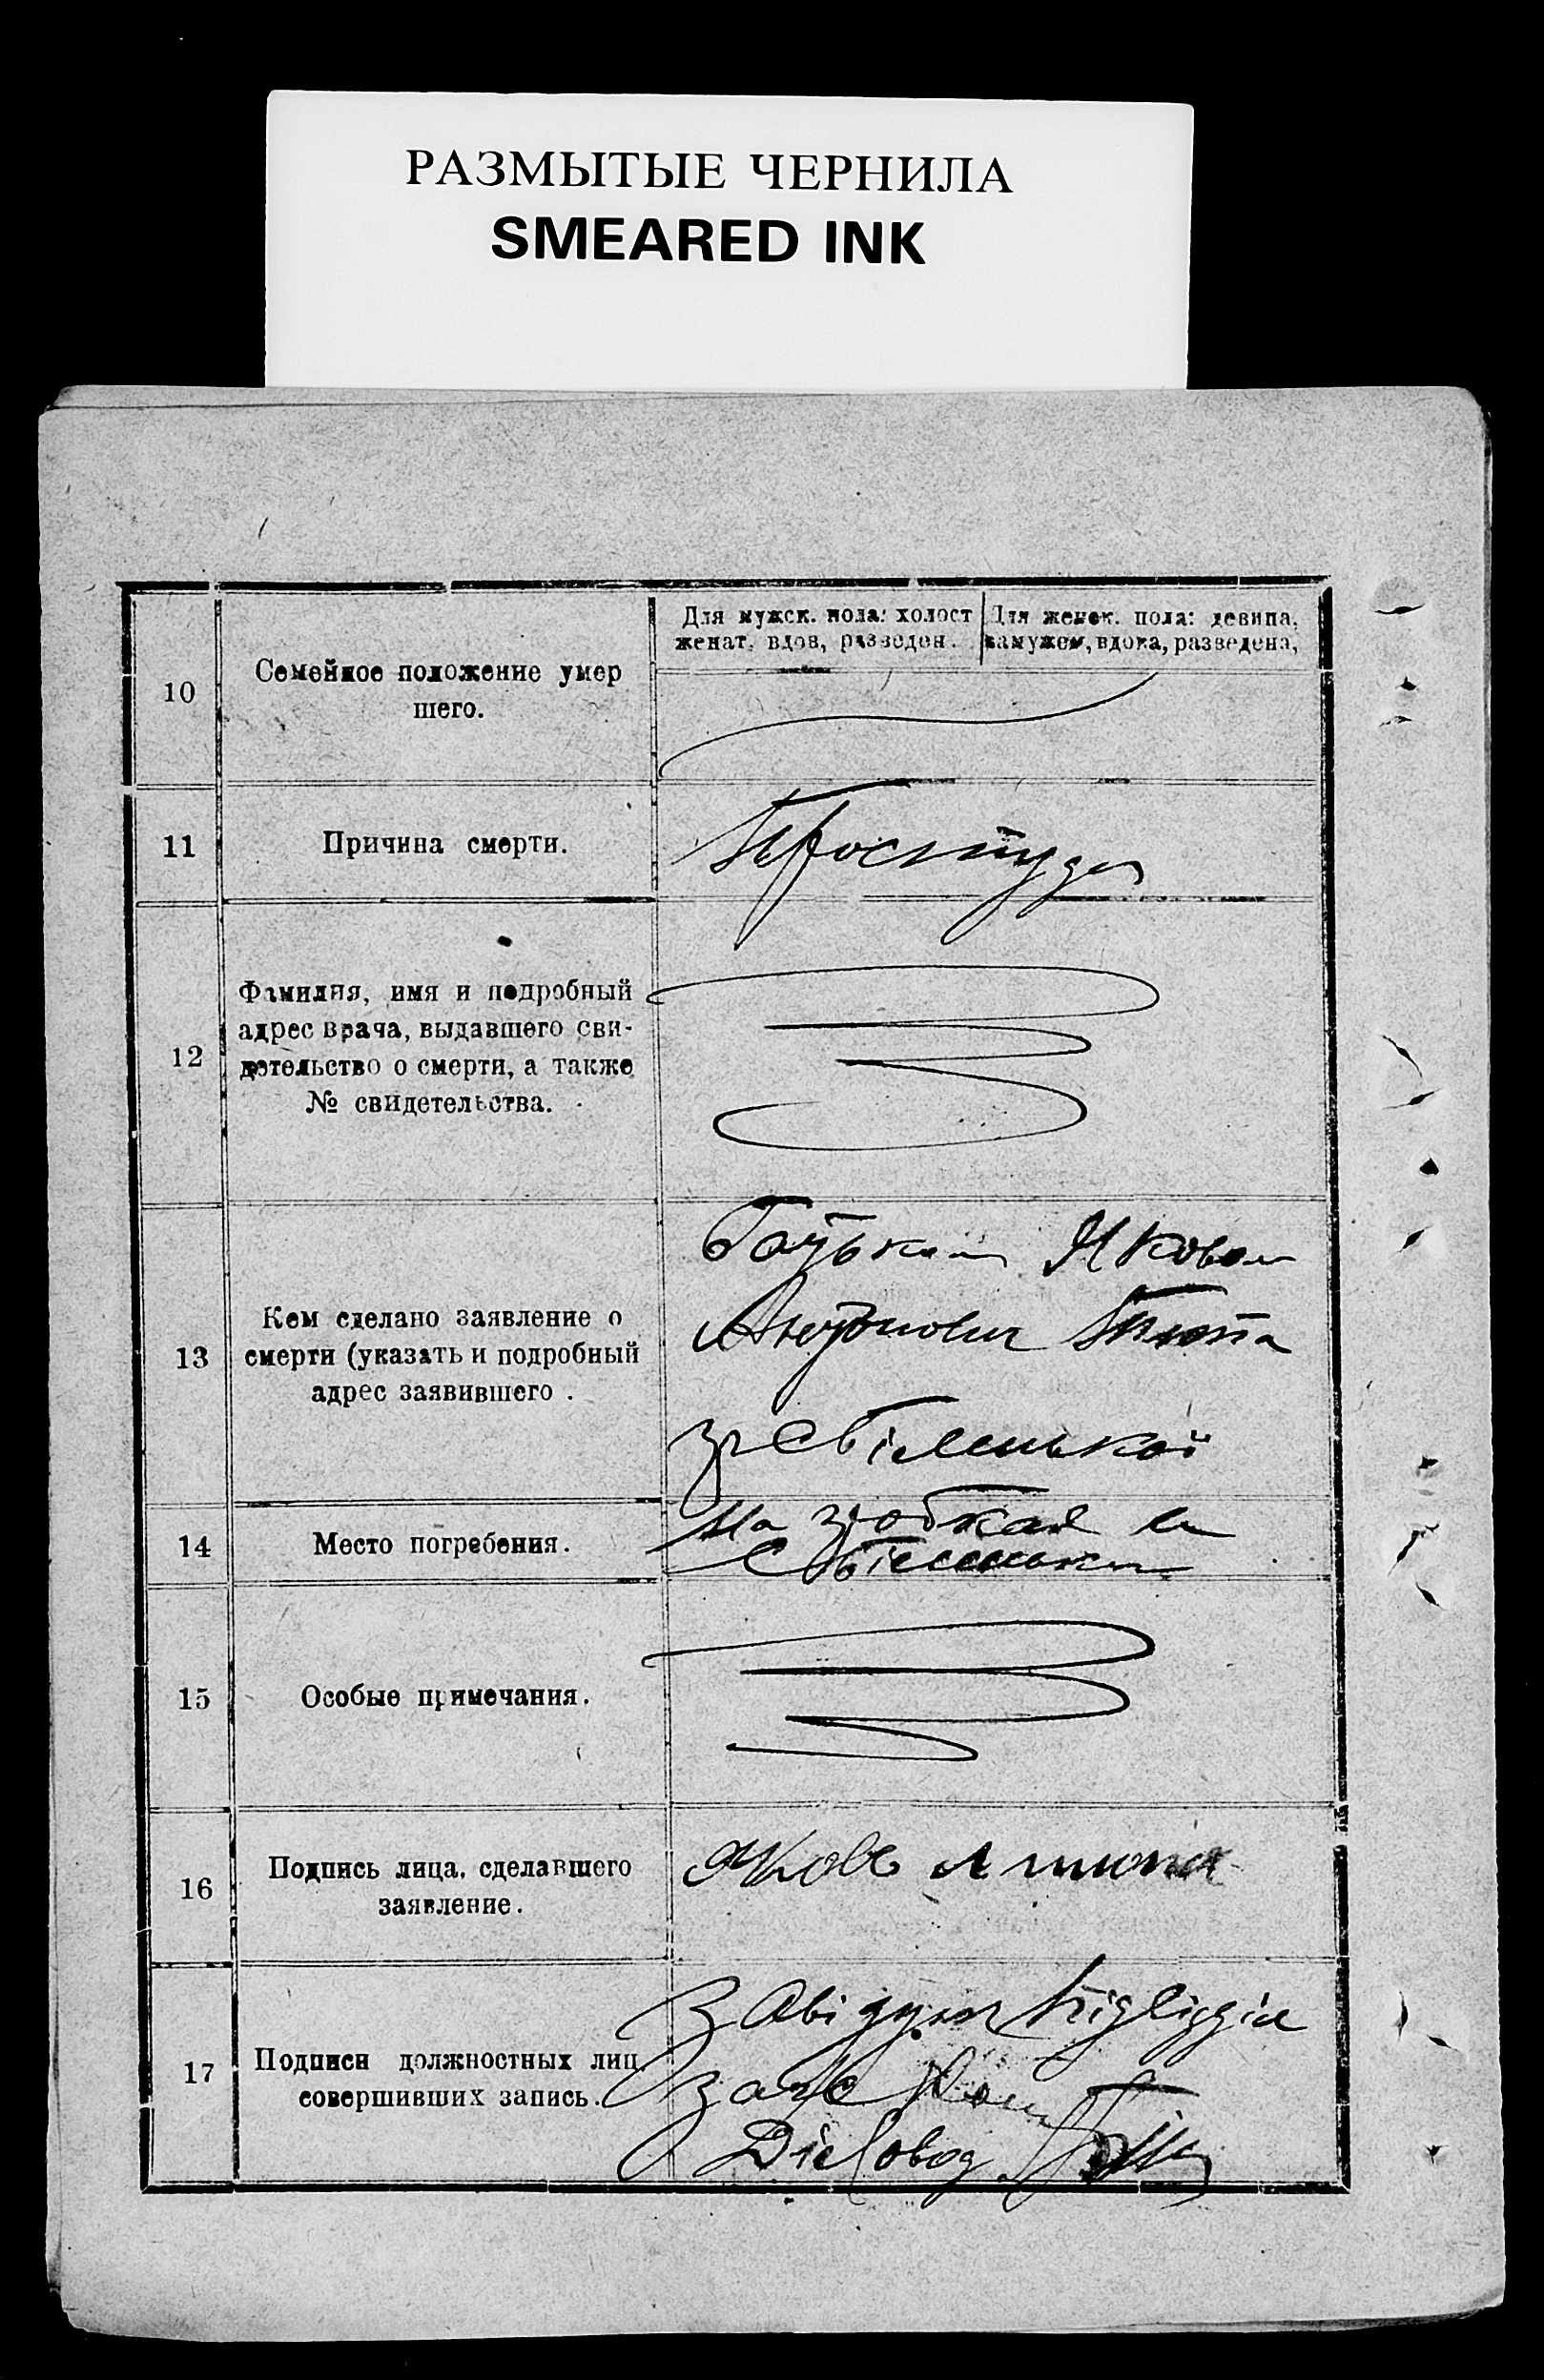 РАЗМЫТЫЕ ЧЕРНИЛА
SMEARED INK
10
Семейное положение умер
шего.
Для мужск. пола: холост
женат, вдов, разведен.
Для женск. пола: девица,
замужем, вдова, разведена,
11
Причина смерти.
Простуда
12
Фамилия, имя и подробный
адрес врача, выдавшего сви-
детельство о смерти, а также
№ свидетельства.
13
Кем сделано заявление о
смерти (указать и подробный
адрес заявившего .
Батьком Яковом
зі с Біленької
14
Место погребения.
На
с Біленьки
15
Особые примечания.
16
Подпись лица, сделавшего
заявление.
Яков
17
Подписи должностных лиц,
совершивших запись.
Завідуюч підвідділ
загс
Діловод